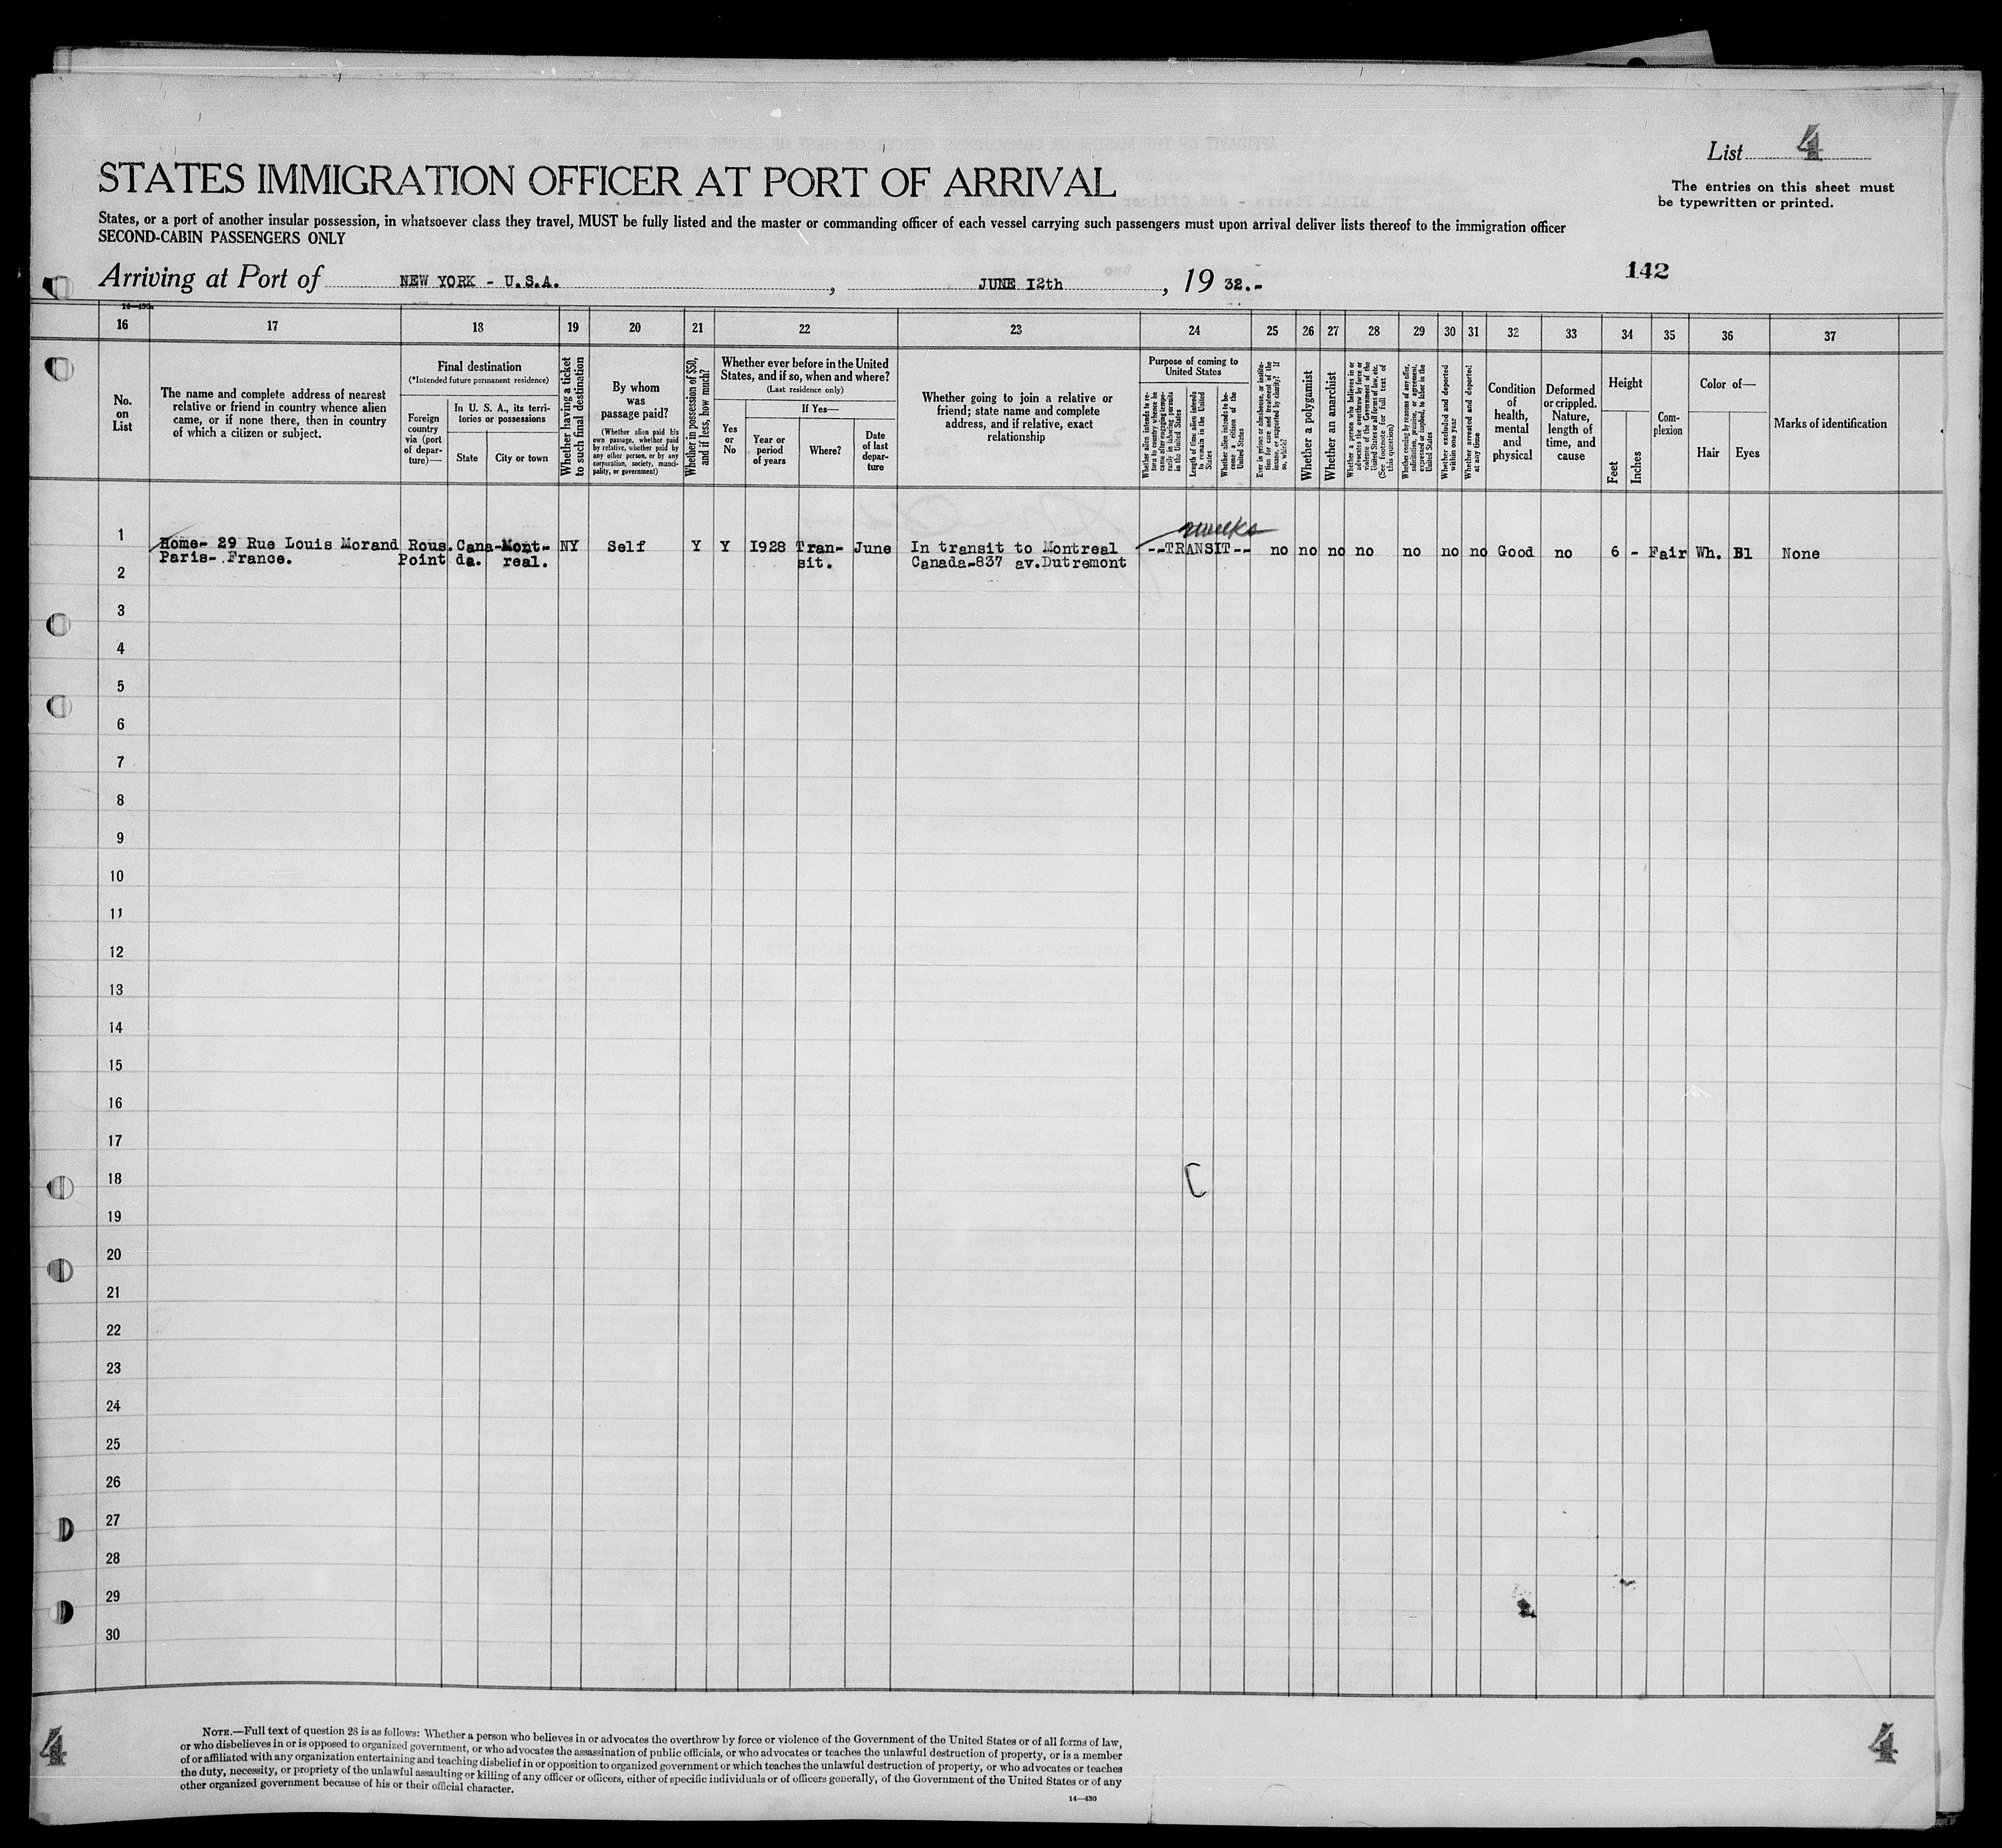 List 4
STATES IMMIGRATION OFFICER AT PORT OF ARRIVAL
The entries on this sheet must
be typewritten or printed.
States, or a port of another insular possession, in whatsoever class they travel, MUST be fully listed and the master or commanding officer of each vessel carrying such passengers must upon arrival deliver lists thereof to the immigration officer
SECOND-CABIN PASSENGERS ONLY
142
Arriving at Port of NEW YORK - U.S.A. , JUNE I2th , 19 32.-
14—430a
16 17 18 19 20 21 22 23 24 25 26 27 28 29 30 31 32 33 34 35 36 37
No.
on
List
The name and complete address of nearest
relative or friend in country whence alien
came, or if none there, then in country
of which a citizen or subject.
Final destination
(*Intended future permanent residence)
Foreign
country
via (port
of depar-
ture)—
In U. S. A., its terri-
tories or possessions
State
City or town
Whether having a ticket
to such final destination
By whom
was
passage paid?
(Whether alien paid his
own passage, whether paid
by relative, whether paid by
any other person, or by any
corporation, society, munici-
pality, or government)
Whether in possession of $50,
and if less, how much?
Whether ever before in the United
States, and if so, when and where?
(Last residence only)
Yes
or
No
If Yes—
Year or
period
of years
Where?
Date
of last
depar-
ture
Whether going to join a relative or
friend; state name and complete
address, and if relative, exact
relationship
Purpose of coming to
United States
Whether alien intends to re-
turn to country whence he
came after engaging tempo-
rarily in laboring pursuits
in the United States
Length of time alien intends
to remain in the United
States
Whether alien intends to be-
come a citizen of the
United States
Ever in prison or almshouse, or institu-
tion for care and treatment of the
insane, or supported by charity? If
so, which?
Whether a polygamist
Whether an anarchist
Whether a person who believes in or
advocates the overthrow by force or
violence of the Government of the
United States or all forms of law, etc.
(See footnote for full text of
this question)
Whether coming by reasons of any offer,
solicitation, promise, or agreement,
expressed or implied, to labor in the
United States
Whether excluded and deported
within one year
Whether arrested and deported
at any time
Condition
of
health,
mental
and
physical
Deformed
or crippled.
Nature,
length of
time, and
cause
Height
Feet
Inches
Com-
plexion
Color of—
Hair
Eyes
Marks of identification
2 weeks
1 Home- 29 Rue Louis Morand Rous. Cana-Mont- NY Self Y Y I928 Tran- June In transit to Montreal --TRANSIT-- no no no no no no no Good no 6 - Fair Wh. Bl None
Paris- France. Point da. real. sit. Canada-837 av.Dutremont
2
3
4
5
6
7
8
9
10
11
12
13
14
15
16
17
18
19
20
21
22
23
24
25
26
27
28
29
30
NOTE.—Full text of question 28 is as follows: Whether a person who believes in or advocates the overthrow by force or violence of the Government of the United States or of all forms of law,
or who disbelieves in or is opposed to organized government, or who advocates the assassination of public officials, or who advocates or teaches the unlawful destruction of property, or is a member
of or affiliated with any organization entertaining and teaching disbelief in or opposition to organized government or which teaches the unlawful destruction of property, or who advocates or teaches
the duty, necessity, or propriety of the unlawful assaulting or killing of any officer or officers, either of specific individuals or of officers generally, of the Government of the United States or of any
other organized government because of his or their official character.
14—430
4
4